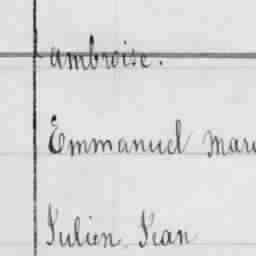 ambroise.
Emmanuel Mari
Julien Jean